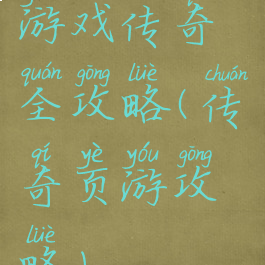 游戏传奇
quán gōng lüè chuán
全攻略(传
qí yè yóu gōng
奇页游攻
lüè
略)